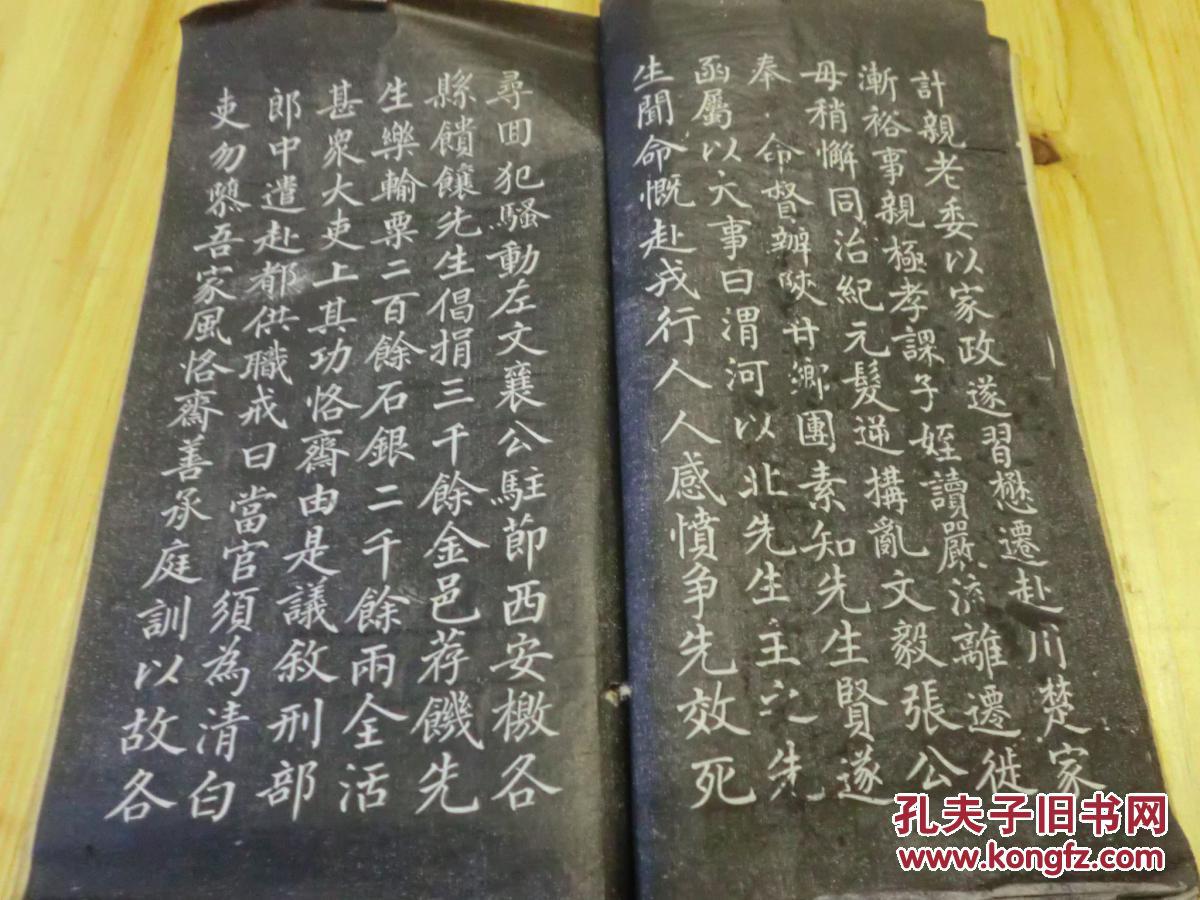 計親老委以家政遂習懋遷赴川楚家
漸裕事親極孝課子姪讀嚴流離遷徙
毋稍懈同治紀元髮逆搆亂文毅張公
奉命督辦陝甘鄉團素知先生賢遂
函屬以大事曰渭河以北先生主之先
生聞命慨赴戎行人人感憤争先效死
尋回犯騷動左文襄公駐節西安檄各
縣饋饟先生倡捐三千餘金邑荐饑先
生樂輸粟二百餘石銀二千餘兩全活
甚衆大吏上其功恪齋由是議敘刑部
郎中遣赴都供職戒曰當官須為清白
吏勿隳吾家風恪齋善承庭訓以故各
孔夫子旧书网
www.kongfz.com